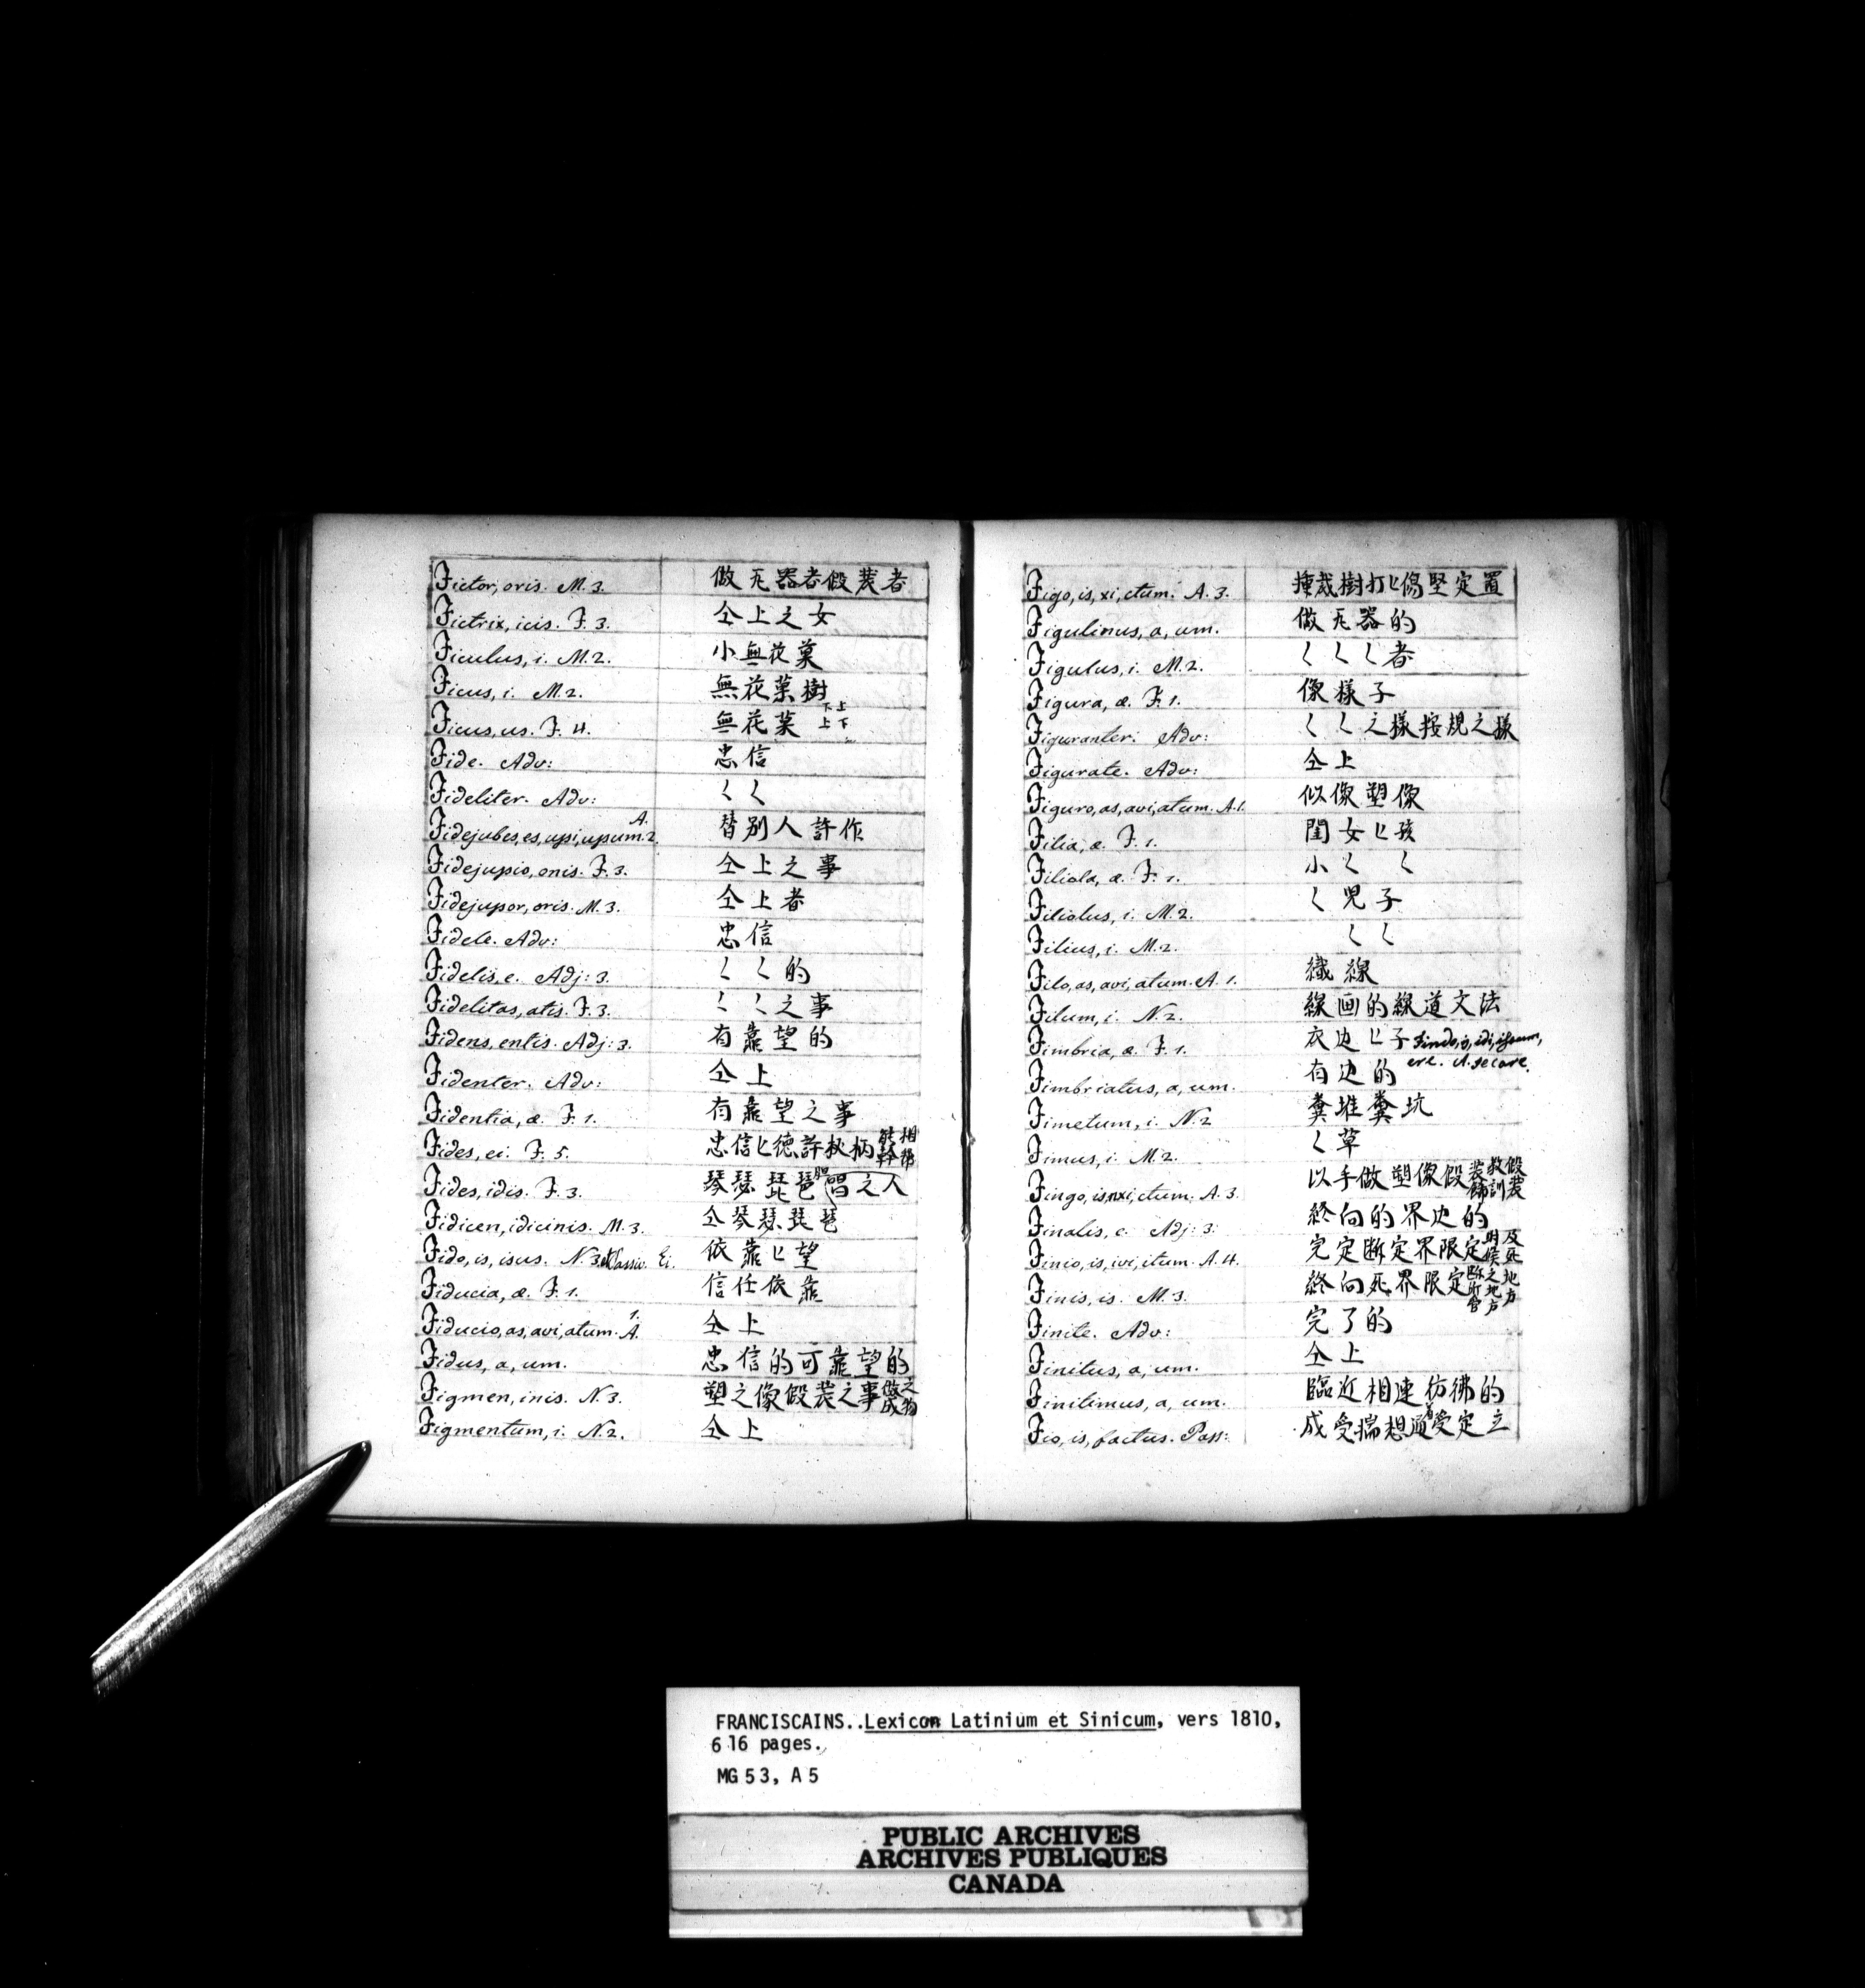 Fictor, oris. M. 3. 做瓦器者假裝者
Fictrix, icis. F. 3. 仝上之女
Ficulus, i. M. 2. 小無花菓
Ficus, i. M. 2. 無花菓樹
Ficus, us. F. 4. 無花菓 下上 上下
Fide. Adv: 忠信
Fideliter. Adv: 〱 〱
Fidejubes, es, upi, upsum. A. 2. 替別人許作
Fidejupio, onis. F. 3. 仝上之事
Fidejupor, oris. M. 3. 仝上者
Fidele. Adv: 忠信
Fidelis, e. Adj: 3. 〱 〱 的
Fidelitas, atis. F. 3. 〱 〱 之事
Fidens, entis. Adj: 3. 有靠望的
Fidenter. Adv: 仝上
Fidentia, æ. F. 1. 有靠望之事
Fides, ei. F. 5. 忠信匕德許
Fides, idis. F. 3. 琴瑟琵琶 唱之人
Fidicen, idicinis. M. 3. 仝琴瑟琵琶
Fido, is, isus. N. 3. 依靠匕望
Fiducia, æ. F. 1. 信任依靠
Fiducio, as, avi, atum. A. 1. 仝上
Fidus, a, um. 忠信的可靠望的
Figmen, inis. N. 3. 塑之像假裝之事做成之物
Figmentum, i. N. 2. 仝上
Figo, is, xi, ctum. A. 3. 栽樹打匕傷堅定置
Figulinus, a, um. 做瓦器的
Figulus, i. M. 2. 〱 〱 〱 者
Figura, æ. F. 1. 像樣子
Figuranter. Adv: 〱 〱 之樣按規之樣
Figurate. Adv: 仝上
Figuro, as, avi, atum. A. 1. 似像塑像
Filia, æ. F. 1. 閨女匕孩
Filiola, æ. F. 1. 小 〱 〱
Filiolus, i. M. 2. 〱 児子
Filius, i. M. 2. 〱 〱
Filo, as, avi, atum. A. 1. 織線
Filum, i. N. 2. 線画的線道文法
Fimbria, æ. F. 1. 衣边匕子 Findo, is, idi, issum,
ere. A. secare.
Fimbriatus, a, um. 有边的
Fimetum, i. N. 2 糞堆糞坑
Fimus, i. M. 2. 〱 草
Fingo, is, nxi, ctum. A. 3. 以手做塑像假裝飾教訓假裝
Finalis, e. Adj: 3. 終向的界边的
Finio, is, ivi, itum. A. 4. 完定断定界限定
Finis, is. M. 3. 終向死界限定
Finite. Adv: 完了的
Finitus, a, um. 仝上
Finitimus, a, um. 臨近相連彷彿的
Fio, is, factus. Pass: 成受揣想 受定立
FRANCISCAINS..Lexicon Latinium et Sinicum, vers 1810,
616 pages.
MG 53, A 5
PUBLIC ARCHIVES
ARCHIVES PUBLIQUES
CANADA